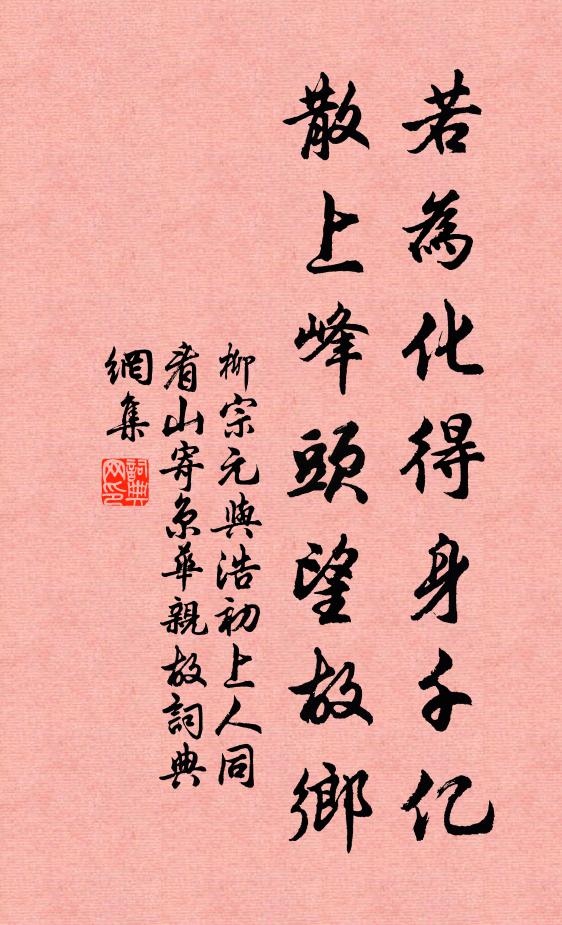 若為化得身千亿
散上峰頭望故鄉
柳宗元與浩初上人同
看山寄京華親故詞典
網集
詞典
网印